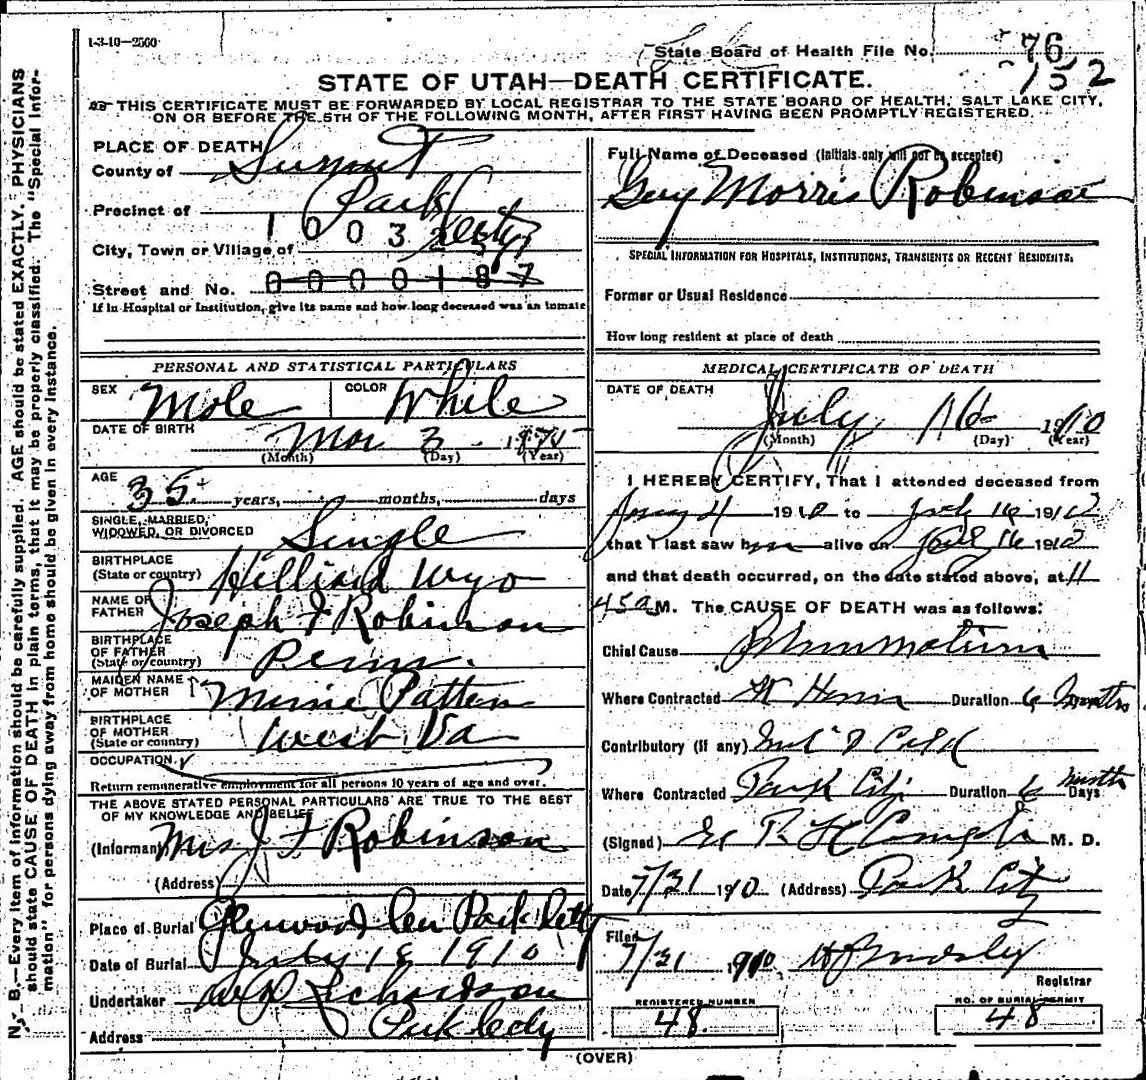 1-3-10—2500
State Board of Health File No. 76
132
STATE OF UTAH—DEATH CERTIFICATE.
THIS CERTIFICATE MUST BE FORWARDED BY LOCAL REGISTRAR TO THE STATE BOARD OF HEALTH, SALT LAKE CITY,
ON OR BEFORE THE 5TH OF THE FOLLOWING MONTH, AFTER FIRST HAVING BEEN PROMPTLY REGISTERED.
N. B.—Every item of information should be carefully supplied. AGE should be stated EXACTLY. PHYSICIANS
should state CAUSE OF DEATH in plain terms, that it may be properly classified. The "Special Infor-
mation" for persons dying away from home should be given in every instance.
PLACE OF DEATH
County of Summit
Precinct of Park City
1 0 0 3
City, Town or Village of
Street and No. 0 0 0 0 1 8 7
If in Hospital or Institution, give its name and how long deceased was an inmate
PERSONAL AND STATISTICAL PARTICULARS
SEX Male COLOR White
DATE OF BIRTH Mar 3 1875
(Month) (Day) (Year)
AGE 35 years, months, days
SINGLE, MARRIED,
WIDOWED, OR DIVORCED Single
BIRTHPLACE
(State or country) Hilliard Wyo
NAME OF
FATHER Joseph F Robinson
BIRTHPLACE
OF FATHER
(State or country) Penn.
MAIDEN NAME
OF MOTHER Minnie Patten
BIRTHPLACE
OF MOTHER
(State or country) West Va
OCCUPATION
Return remunerative employment for all persons 10 years of age and over.
THE ABOVE STATED PERSONAL PARTICULARS ARE TRUE TO THE BEST
OF MY KNOWLEDGE AND BELIEF
(Informant) Mrs J F Robinson
(Address)
Place of Burial Glenwood Cem Park City
Date of Burial July 18 1910
Undertaker Richardson
Address Park City
Full Name of Deceased (Initials only will not be accepted)
Guy Morris Robinson
SPECIAL INFORMATION FOR HOSPITALS, INSTITUTIONS, TRANSIENTS OR RECENT RESIDENTS.
Former or Usual Residence
How long resident at place of death
MEDICAL CERTIFICATE OF DEATH
DATE OF DEATH
July 16 1910
(Month) (Day) (Year)
I HEREBY CERTIFY, That I attended deceased from
1910 to July 16 1910
that I last saw him alive on July 16 1910
and that death occurred, on the date stated above, at 11
45 a M. The CAUSE OF DEATH was as follows:
Chief Cause Rheumatism
Where Contracted Duration 6 months
Contributory (if any)
Where Contracted Park City Duration 6 months Days
(Signed) M. D.
Date 7/31 1910 (Address) Park City
Filed
7/31 1910
Registrar
REGISTERED NUMBER
48
NO. OF BURIAL PERMIT
48
(OVER)